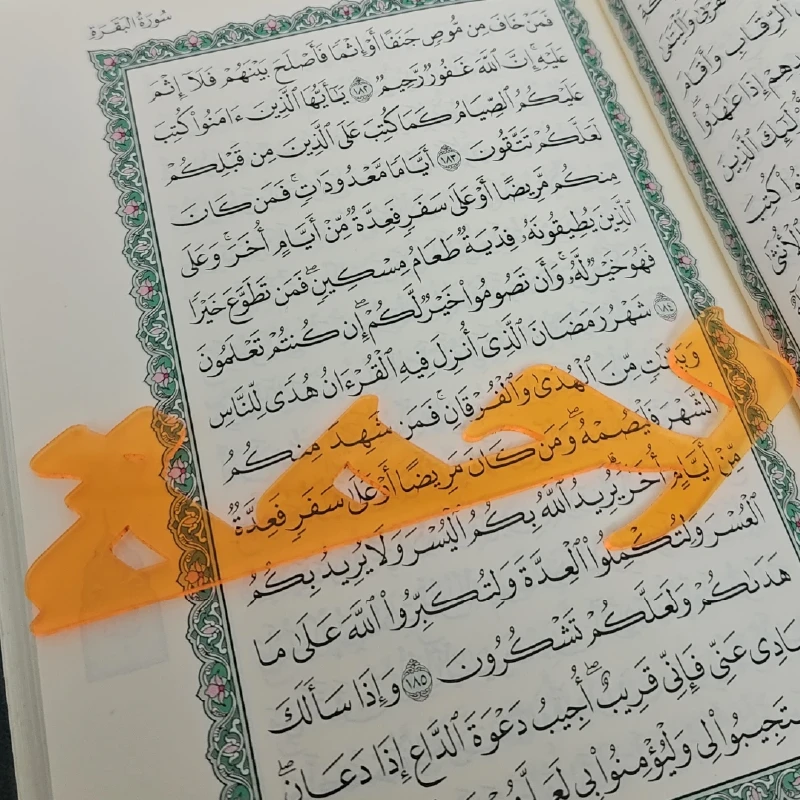 سُورَةُ البَقَرَةِ
فَمَنْ خَافَ مِن مُّوصٍ جَنَفًا أَوْ إِثْمًا فَأَصْلَحَ بَيْنَهُمْ فَلَآ إِثْمَ
عَلَيْهِ ۚ إِنَّ ٱللَّهَ غَفُورٌ رَّحِيمٌ ١٨٢ يَـٰٓأَيُّهَا ٱلَّذِينَ ءَامَنُوا۟ كُتِبَ
عَلَيْكُمُ ٱلصِّيَامُ كَمَا كُتِبَ عَلَى ٱلَّذِينَ مِن قَبْلِكُمْ
لَعَلَّكُمْ تَتَّقُونَ ١٨٣ أَيَّامًا مَّعْدُودَٰتٍ ۚ فَمَن كَانَ
مِنكُم مَّرِيضًا أَوْ عَلَىٰ سَفَرٍ فَعِدَّةٌ مِّنْ أَيَّامٍ أُخَرَ ۚ وَعَلَى
ٱلَّذِينَ يُطِيقُونَهُۥ فِدْيَةٌ طَعَامُ مِسْكِينٍ ۖ فَمَن تَطَوَّعَ خَيْرًا
فَهُوَ خَيْرٌ لَّهُۥ ۚ وَأَن تَصُومُوا۟ خَيْرٌ لَّكُمْ ۖ إِن كُنتُمْ تَعْلَمُونَ
١٨٤ شَهْرُ رَمَضَانَ ٱلَّذِىٓ أُنزِلَ فِيهِ ٱلْقُرْءَانُ هُدًى لِّلنَّاسِ
وَبَيِّنَـٰتٍ مِّنَ ٱلْهُدَىٰ وَٱلْفُرْقَانِ ۚ فَمَن شَهِدَ مِنكُمُ
ٱلشَّهْرَ فَلْيَصُمْهُ ۖ وَمَن كَانَ مَرِيضًا أَوْ عَلَىٰ سَفَرٍ فَعِدَّةٌ
مِّنْ أَيَّامٍ أُخَرَ ۗ يُرِيدُ ٱللَّهُ بِكُمُ ٱلْيُسْرَ وَلَا يُرِيدُ بِكُمُ
ٱلْعُسْرَ وَلِتُكْمِلُوا۟ ٱلْعِدَّةَ وَلِتُكَبِّرُوا۟ ٱللَّهَ عَلَىٰ مَا
هَدَىٰكُمْ وَلَعَلَّكُمْ تَشْكُرُونَ ١٨٥ وَإِذَا سَأَلَكَ
عَنِّى فَإِنِّى قَرِيبٌ ۖ أُجِيبُ دَعْوَةَ ٱلدَّاعِ إِذَا دَعَانِ ۖ
وَلْيُؤْمِنُوا۟ بِى
رحمة
ٱلرِّقَابِ وَأَقَامَ
إِذَا عَـٰهَدُوا۟
ٱلَّذِينَ
كُتِبَ